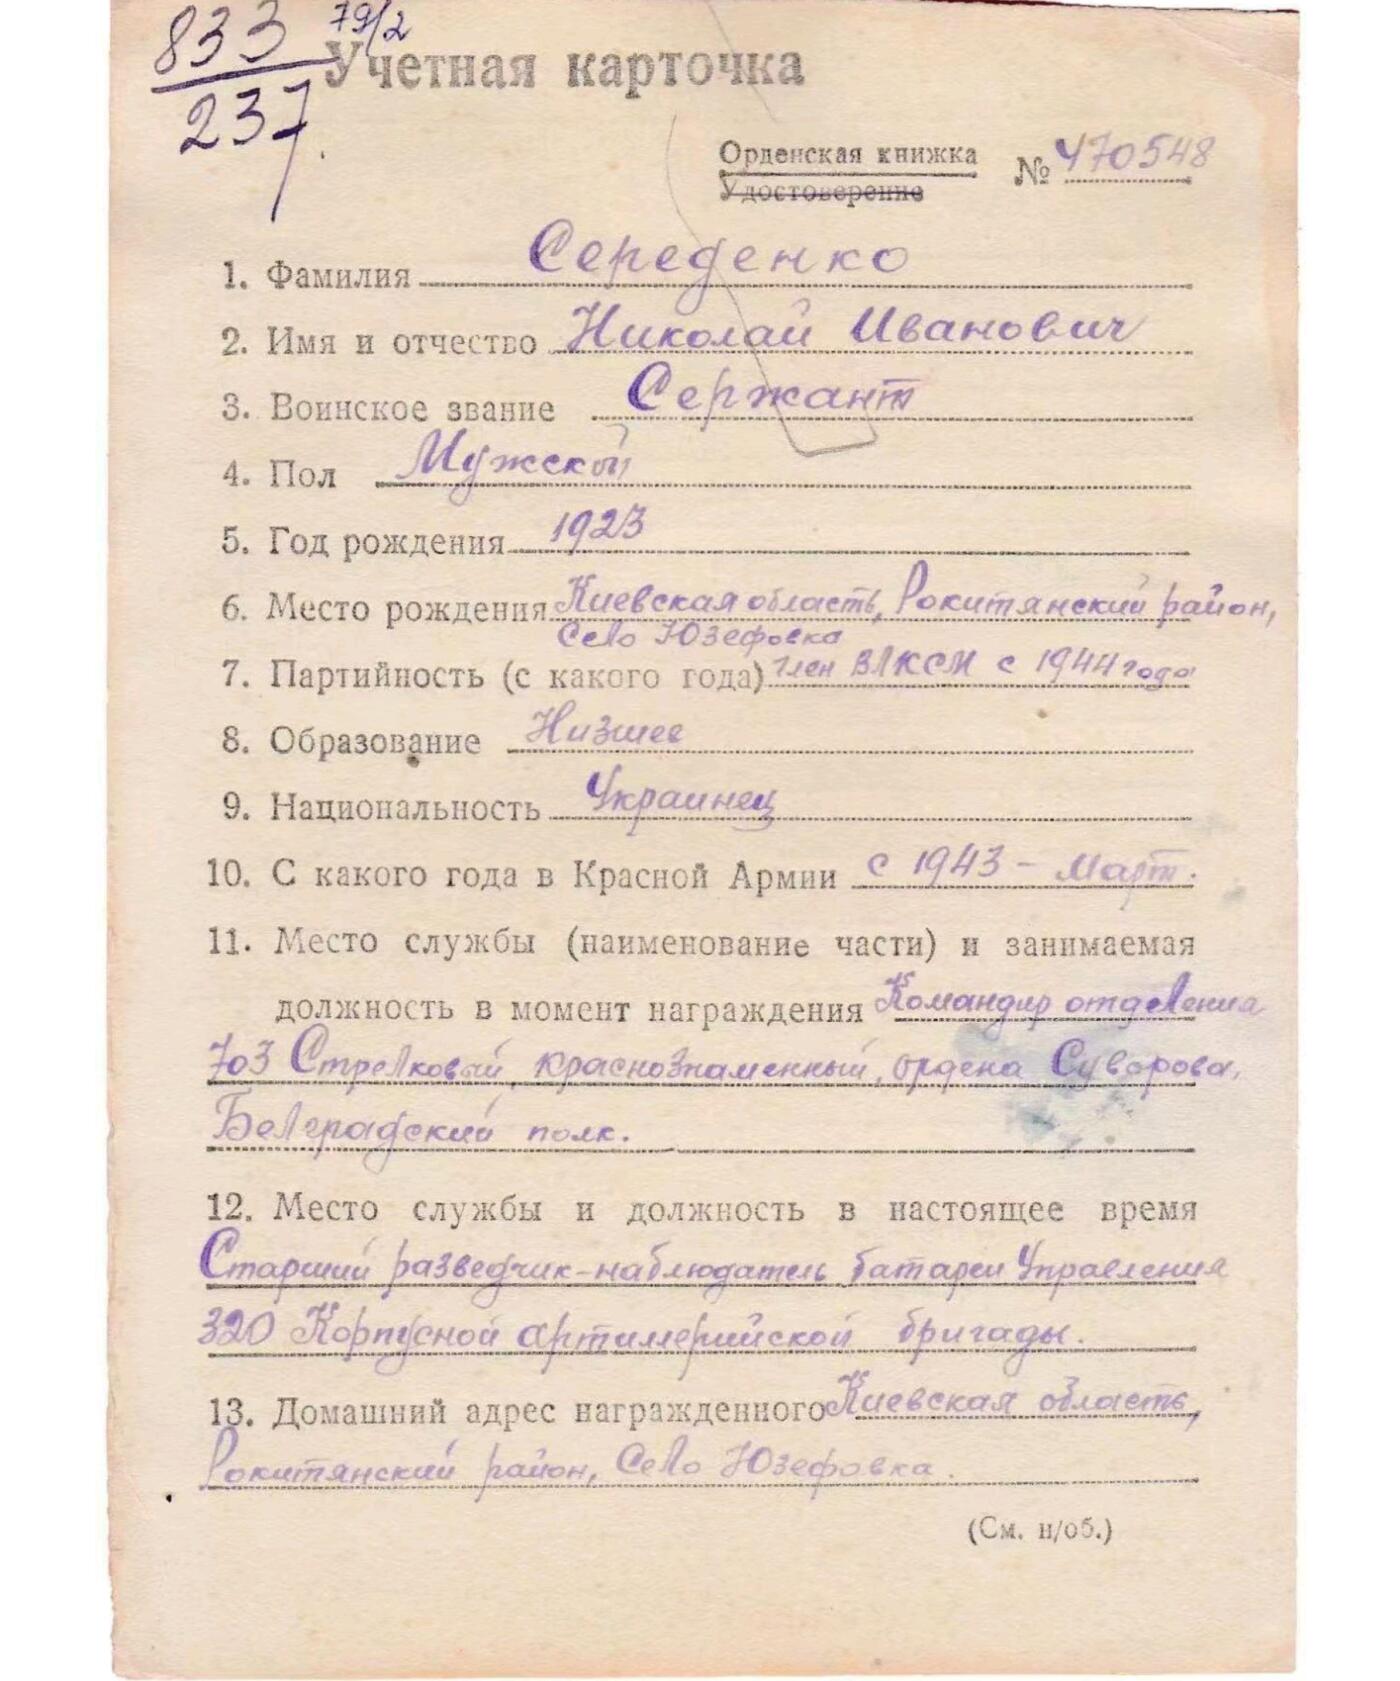 833 79/2
237
Учетная карточка
Орденская книжка № 470548
Удостоверение
1. Фамилия Середенко
2. Имя и отчество Николай Иванович
3. Воинское звание Сержант
4. Пол Мужской
5. Год рождения 1923
6. Место рождения Киевская область, Рокитянский район,
село Юзефовка
7. Партийность (с какого года) член ВЛКСМ с 1944 года
8. Образование Низшее
9. Национальность Украинец
10. С какого года в Красной Армии с 1943 – Март.
11. Место службы (наименование части) и занимаемая
должность в момент награждения Командир отделения
703 Стрелковый, краснознаменный, ордена Суворова,
Белградский полк.
12. Место службы и должность в настоящее время
Старший разведчик-наблюдатель батареи Управления
320 Корпусной артиллерийской бригады.
13. Домашний адрес награжденного Киевская область,
Рокитянский район, село Юзефовка.
(См. н/об.)